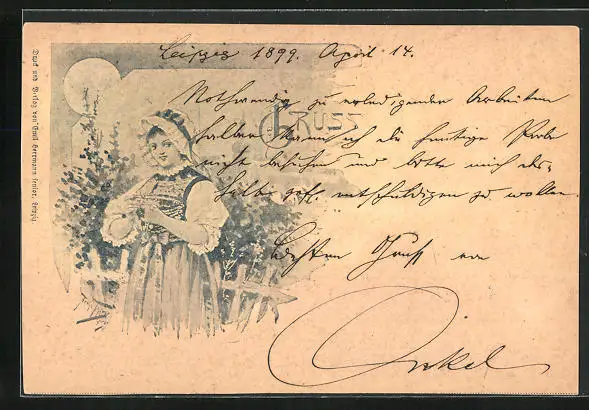 Leipzig 1899. April 14.
Nothwendig zu erledigender Arbeiten
halber kann ich die heutige Probe
nicht besuchen und bitte mich des-
halb gefl. entschuldigen zu wollen.
Besten Gruß von
Onkel
GRUSS
Druck und Verlag von Emil Herrmann senior, Leipzig.